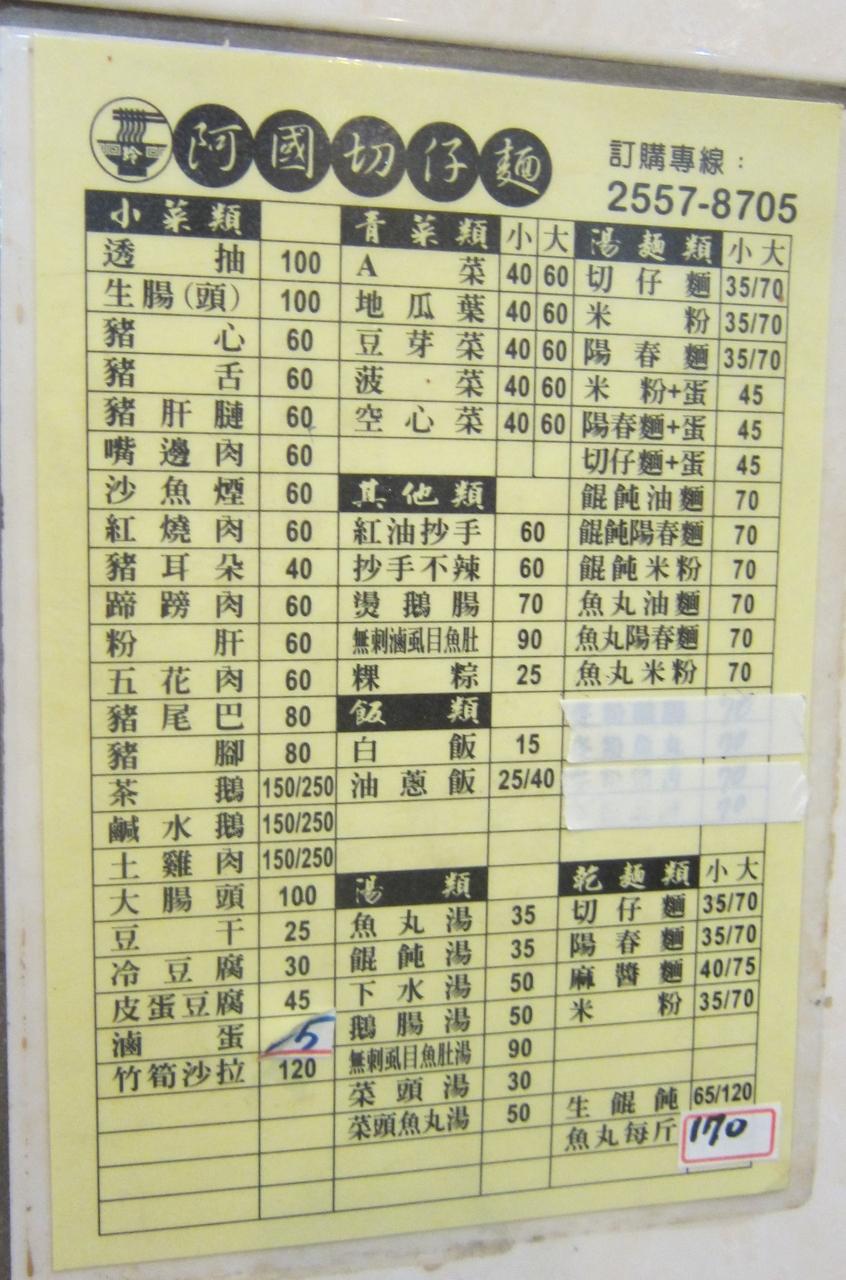 玲
阿國切仔麵
訂購專線：
2557-8705
小菜類
透抽 100
生腸(頭) 100
豬心 60
豬舌 60
豬肝腱 60
嘴邊肉 60
沙魚煙 60
紅燒肉 60
豬耳朵 40
蹄膀肉 60
粉肝 60
五花肉 60
豬尾巴 80
豬腳 80
茶鵝 150/250
鹹水鵝 150/250
土雞肉 150/250
大腸頭 100
豆干 25
冷豆腐 30
皮蛋豆腐 45
滷蛋
竹筍沙拉 120
青菜類 小 大
A菜 40 60
地瓜葉 40 60
豆芽菜 40 60
菠菜 40 60
空心菜 40 60
其他類
紅油抄手 60
抄手不辣 60
燙鵝腸 70
無刺滷虱目魚肚 90
粿粽 25
飯類
白飯 15
油蔥飯 25/40
湯類
魚丸湯 35
餛飩湯 35
下水湯 50
鵝腸湯 50
無刺虱目魚肚湯 90
菜頭湯 30
菜頭魚丸湯 50
湯麵類 小 大
切仔麵 35/70
米粉 35/70
陽春麵 35/70
米粉+蛋 45
陽春麵+蛋 45
切仔麵+蛋 45
餛飩油麵 70
餛飩陽春麵 70
餛飩米粉 70
魚丸油麵 70
魚丸陽春麵 70
魚丸米粉 70
乾麵類 小 大
切仔麵 35/70
陽春麵 35/70
麻醬麵 40/75
米粉 35/70
生餛飩 65/120
魚丸每斤 170